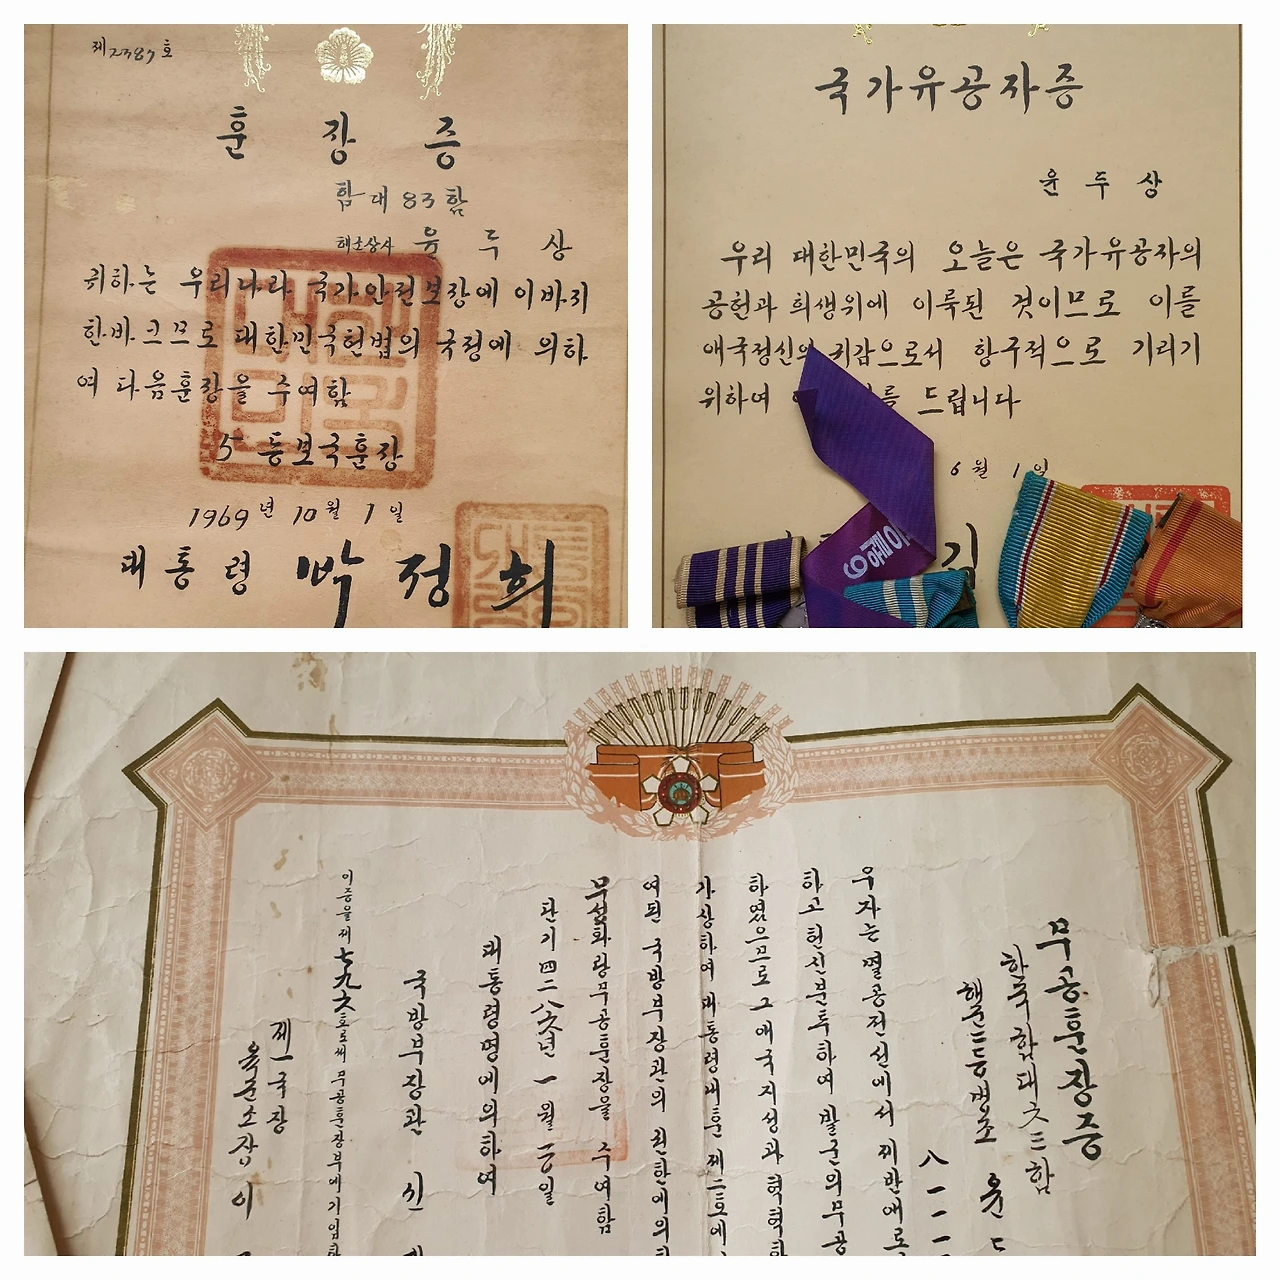 제2387호
훈장증
함대83함
해군상사 윤두상
귀하는 우리나라 국가안전보장에 이바지
한바 크므로 대한민국헌법의 규정에 의하
여 다음훈장을 수여함
5등보국훈장
1969년 10월 1일
대통령 박정희
국가유공자증
윤두상
우리 대한민국의 오늘은 국가유공자의
공헌과 희생위에 이룩된 것이므로 이를
애국정신의 귀감으로서 항구적으로 기리기
위하여 를 드립니다
6월 1일
김
무공훈장증
한국함대 六三함
해군 윤
八一一一
우자는멸공전선에서 제반애로
하고 헌신분투하여 발군의무공
하였으므로 그 애국지성과 혁혁한
가상하여 대통령내훈 제二호에
여된 국방부장관의 권한에의
무성화랑무공훈장을 수여함
단기 四二八六년 一월 一〇일
대통령명에의하여
국방부장관 신
이증을제七九六호로써 무공훈장부에기입함
제一국장
육군소장 이